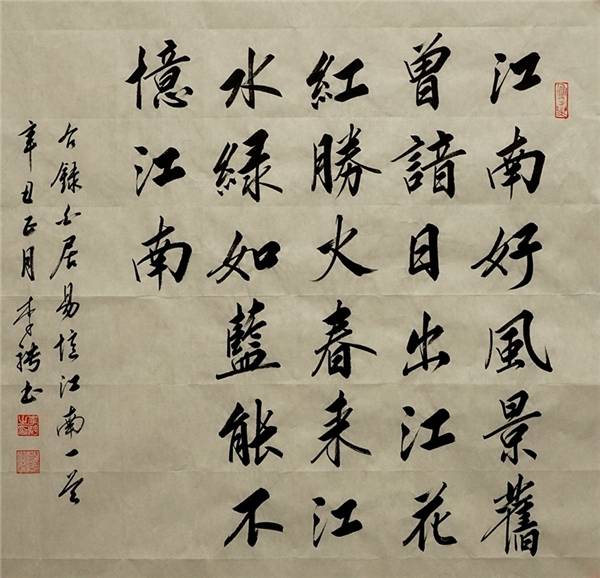 江南好風景舊
曾諳日出江花
紅勝火春来江
水緑如藍能不
憶江南
右録白居易憶江南一首
辛丑正月李騁書